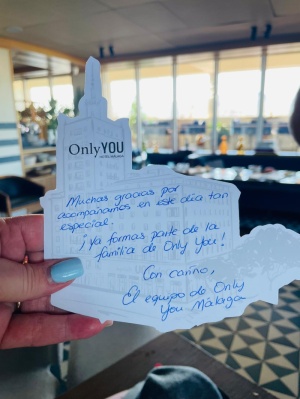 OnlyYOU
Muchas gracias por
acompañarnos en este día tan
especial.
¡Ya formas parte de la
familia de Only You!
Con cariño,
El equipo de Only
You Málaga